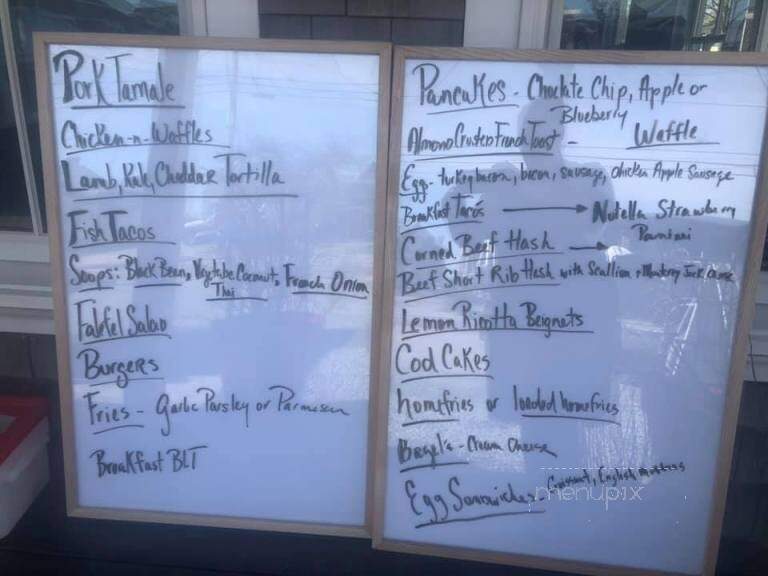 Pork Tamale
Chicken-n-Waffles
Lamb, Kale, Cheddar Tortilla
Fish Tacos
Soups: Black Bean, Vegetable Coconut, French Onion
Thai
Falafel Salad
Burgers
Fries - Garlic Parsley or Parmesan
Breakfast BLT
Pancakes - Choclate Chip, Apple or
Blueberry
Almond Crusted French Toast - Waffle
Egg - turkey bacon, bacon, sausage, Chicken Apple Sausage
Breakfast Tacos → Nutella Strawberry
Corned Beef Hash → Panini
Beef Short Rib Hash with Scallion + Monterey Jack Cheese
Lemon Ricotta Beignets
Cod Cakes
homefries or loaded homefries
Bagel's - Cream Cheese
Egg Sandwiches - Croissant, English muffins
menupix